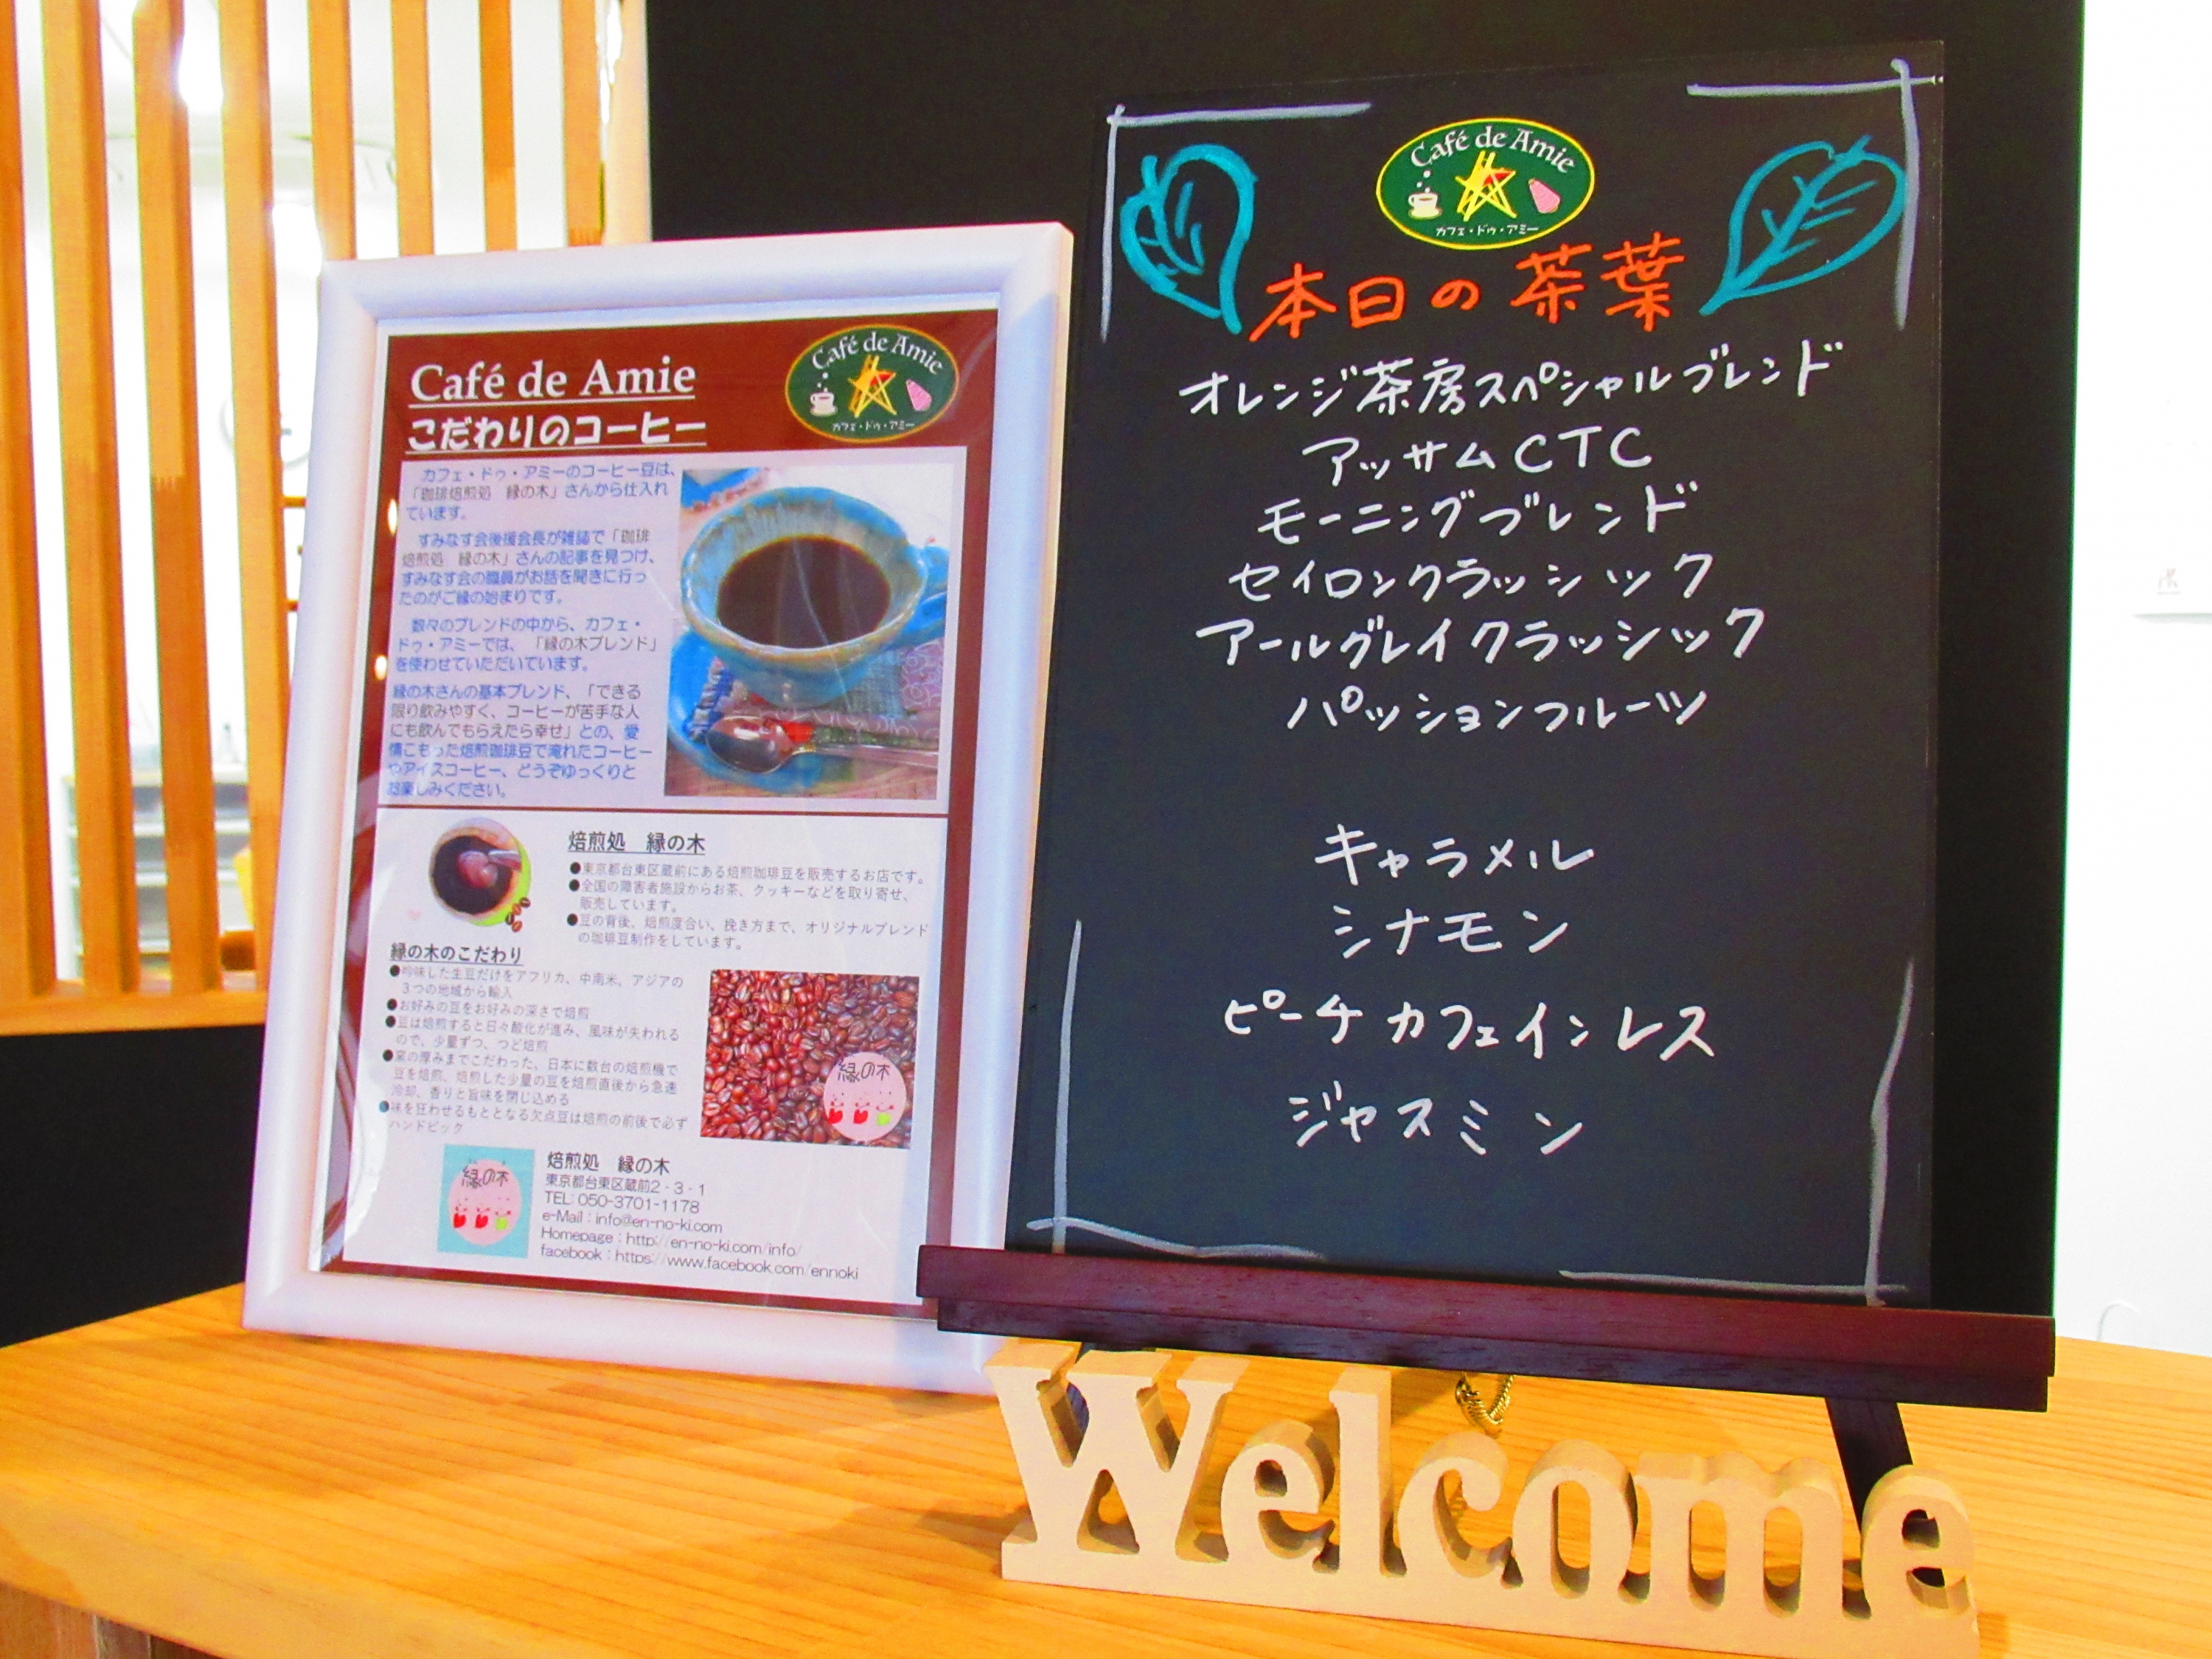 Café de Amie
こだわりのコーヒー
Café de Amie
カフェ・ドゥ・アミー
カフェ・ドゥ・アミーのコーヒー豆は、
「珈琲焙煎処　縁の木」さんから仕入れ
ています。
すみなす会後援会長が雑誌で「珈琲
焙煎処　縁の木」さんの記事を見つけ、
すみなす会の職員がお話を聞きに行っ
たのがご縁の始まりです。
数々のブレンドの中から、カフェ・
ドゥ・アミーでは、「縁の木ブレンド」
を使わせていただいています。
縁の木さんの基本ブレンド、「できる
限り飲みやすく、コーヒーが苦手な人
にも飲んでもらえたら幸せ」との、愛
情こもった焙煎珈琲豆で淹れたコーヒー
やアイスコーヒー、どうぞゆっくりと
お楽しみください。
焙煎処　縁の木
●東京都台東区蔵前にある焙煎珈琲豆を販売するお店です。
●全国の障害者施設からお茶、クッキーなどを取り寄せ、
販売しています。
●豆の背後、焙煎度合い、挽き方まで、オリジナルブレンド
の珈琲豆制作をしています。
縁の木のこだわり
●吟味した生豆だけをアフリカ、中南米、アジアの
３つの地域から輸入
●お好みの豆をお好みの深さで焙煎
●豆は焙煎すると日々酸化が進み、風味が失われる
ので、少量ずつ、つど焙煎
●窯の厚みまでこだわった、日本に数台の焙煎機で
豆を焙煎、焙煎した少量の豆を焙煎直後から急速
冷却、香りと旨味を閉じ込める
●味を狂わせるもととなる欠点豆は焙煎の前後で必ず
ハンドピック
縁の木
縁の木
焙煎処　縁の木
東京都台東区蔵前2-3-1
TEL:050-3701-1178
e-Mail：info@en-no-ki.com
Homepage：http://en-no-ki.com/info/
facebook：https://www.facebook.com/ennoki
Café de Amie
カフェ・ドゥ・アミー
本日の茶葉
オレンジ茶房スペシャルブレンド
アッサムCTC
モーニングブレンド
セイロンクラッシック
アールグレイクラッシック
パッションフルーツ
キャラメル
シナモン
ピーチカフェインレス
ジャスミン
Welcome